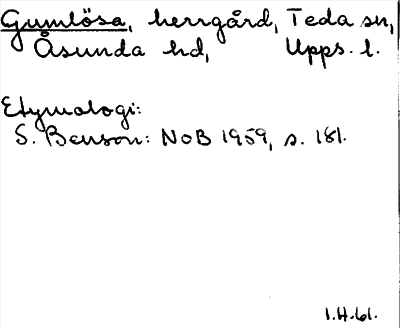 Gumlösa, herrgård, Teda sn,
Åsunda hd, Upps. l.
Etymologi:
S. Benson: NoB 1959, s. 181.